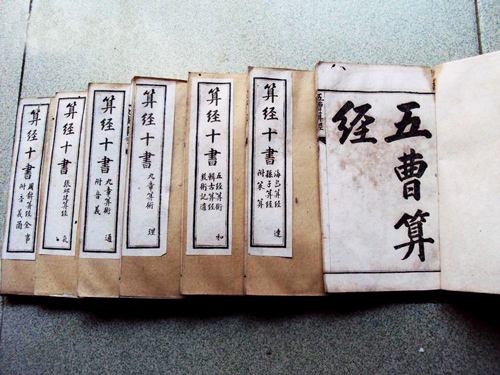 五曹算
经
算经十書
海島算经
孫子算经
附策算
達
算经十書
五经算術
輯古算经
数術記遺
和
算经十書
九章算術
理
算经十書
九章算術
附音義
通
算经十書
張邱建算经
算经十書
周髀算经
附音義